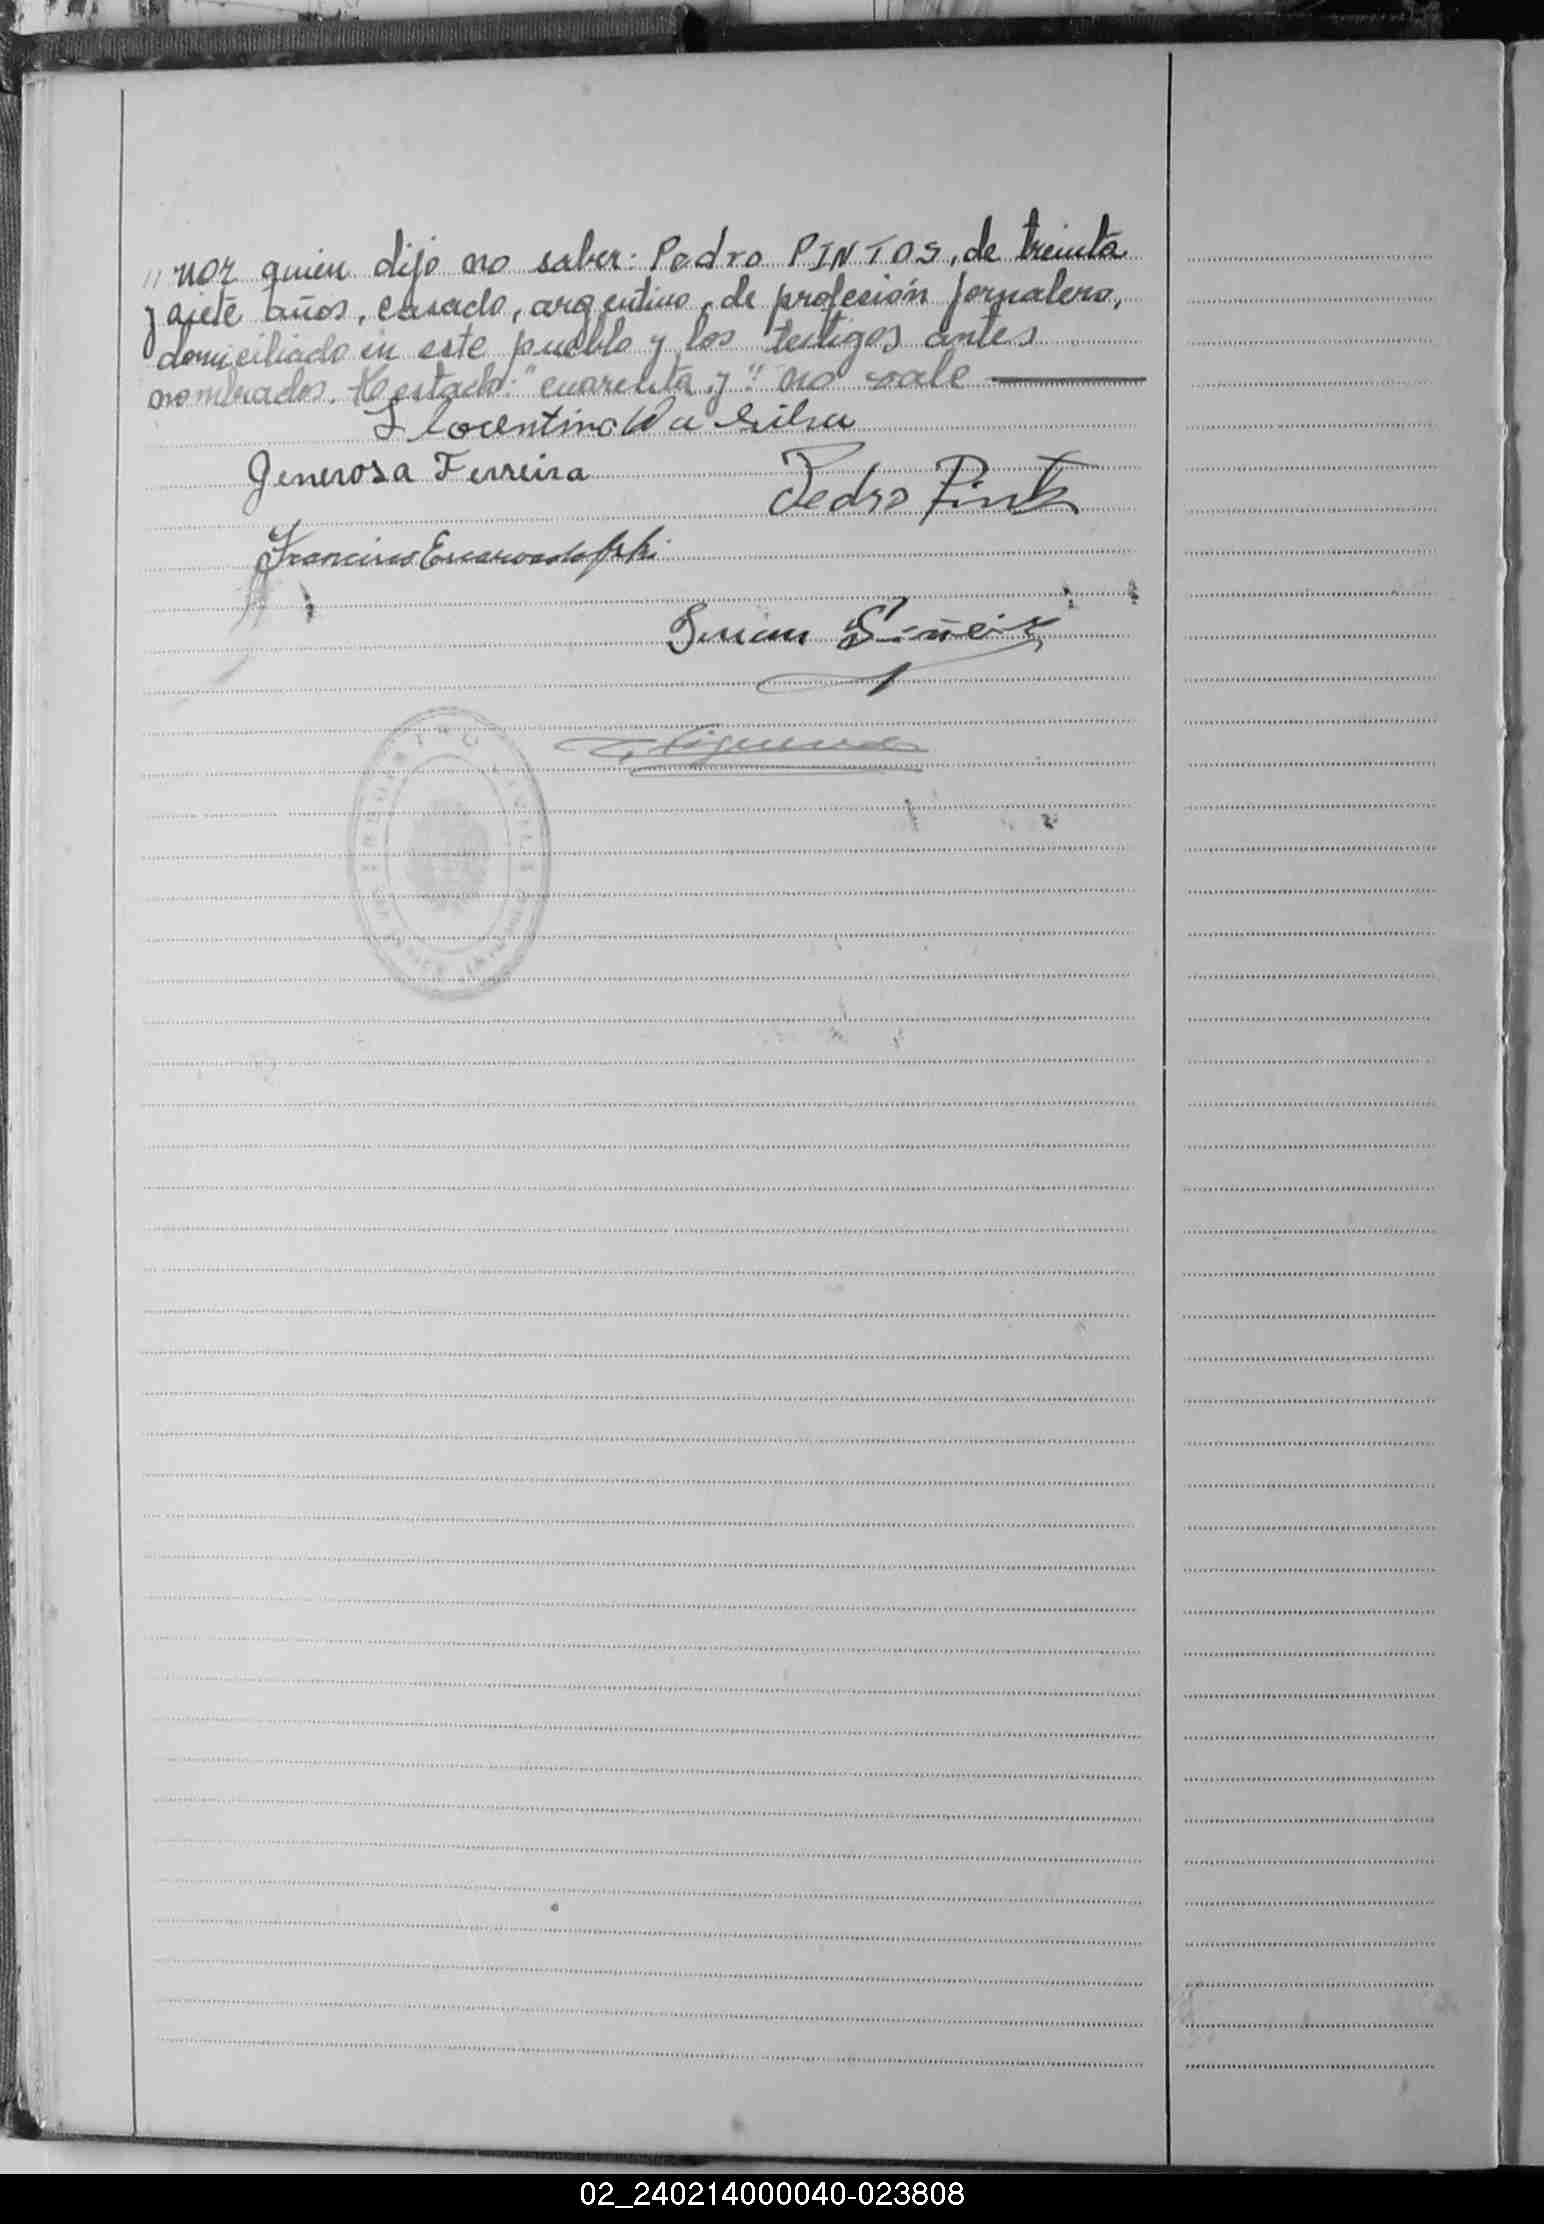 " nor quien dijo no saber: Pedro PINTOS, de treinta
y siete años, casado, argentino, de profesión jornalero,
domiciliado en este pueblo y los testigos antes
nombrados. Testado: "cuarenta y" no vale
Florentino Da Silva
Generosa Ferreira
Pedro Pintos
Francisco
REGISTRO CIVIL
02_240214000040-023808